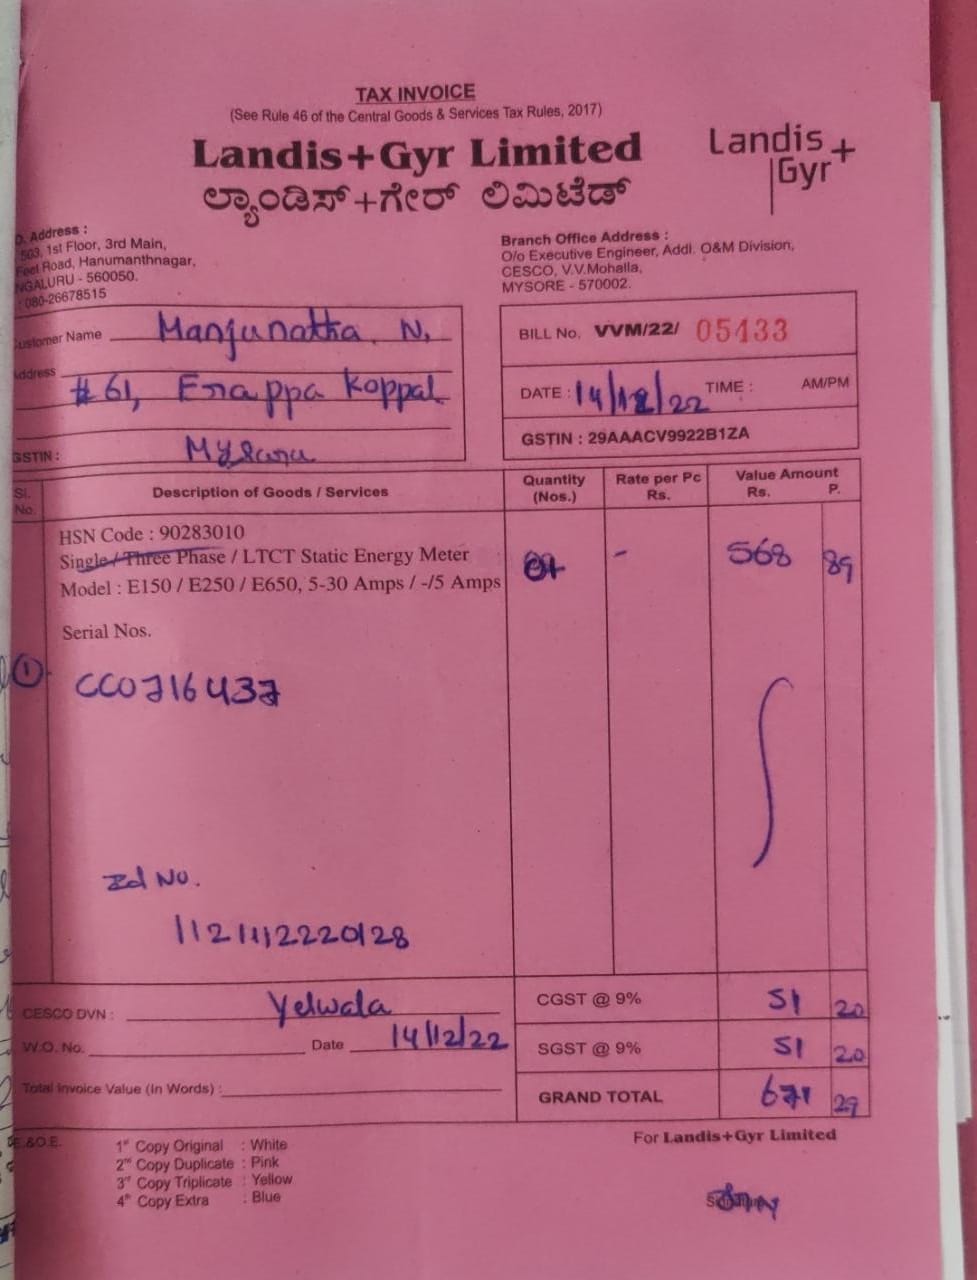 TAX INVOICE
(See Rule 46 of the Central Goods & Services Tax Rules, 2017)
Landis+Gyr Limited
ಲ್ಯಾಂಡಿಸ್+ಗೇರ್ ಲಿಮಿಟೆಡ್
Landis+
Gyr
. Address :
503, 1st Floor, 3rd Main,
Feet Road, Hanumanthnagar,
NGALURU - 560050.
: 080-26678515
Branch Office Address :
O/o Executive Engineer, Addl. O&M Division,
CESCO, V.V.Mohalla,
MYSORE - 570002.
ustomer Name Manjunatha. N.
ddress
# 61, Enappa Koppal
GSTIN :
BILL No. VVM/22/ 05433
DATE : 14/12/22 TIME : AM/PM
GSTIN : 29AAACV9922B1ZA
Sl. No.
Description of Goods / Services
Quantity (Nos.)
Rate per Pc Rs.
Value Amount Rs. P.
HSN Code : 90283010
Single / Three Phase / LTCT Static Energy Meter
01 - 568 89
Model : E150 / E250 / E650, 5-30 Amps / -/5 Amps
Serial Nos.
① CC0716437
No.
CESCO DVN : Yelwala
W.O. No. Date 14/12/22
Total Invoice Value (In Words) :
CGST @ 9% 51 20
SGST @ 9% 51 20
GRAND TOTAL 671 29
E.&O.E.
1st Copy Original : White
2nd Copy Duplicate : Pink
3rd Copy Triplicate : Yellow
4th Copy Extra : Blue
For Landis+Gyr Limited